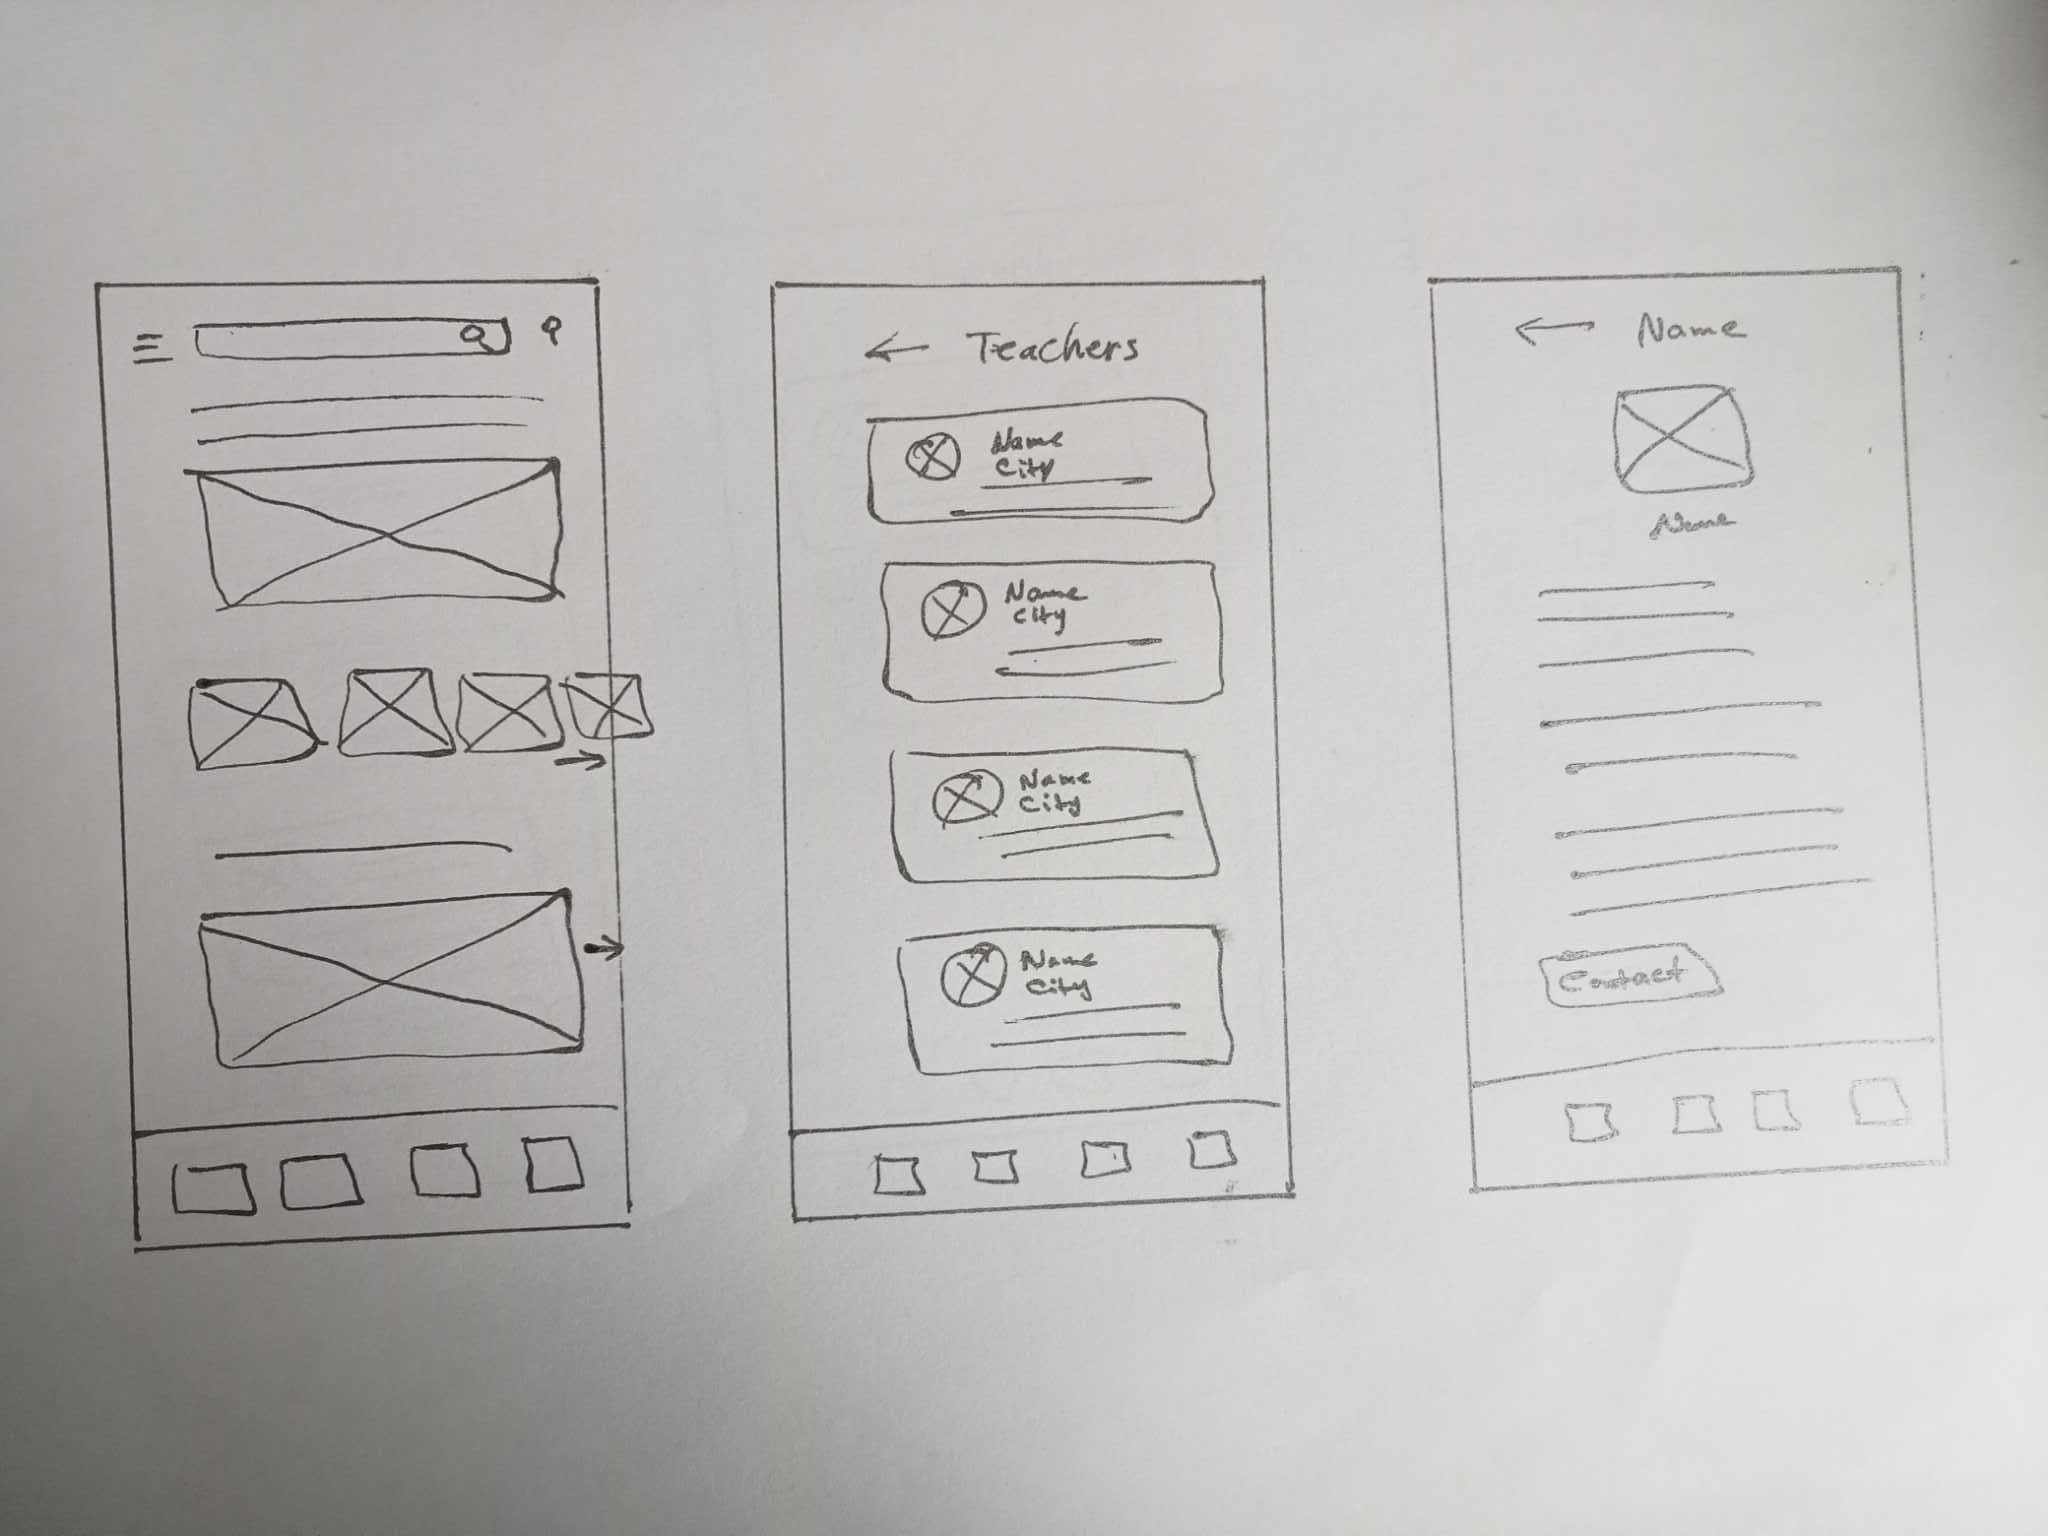 Teachers
Name
City
Name
City
Name
City
Name
City
Name
Name
Contact